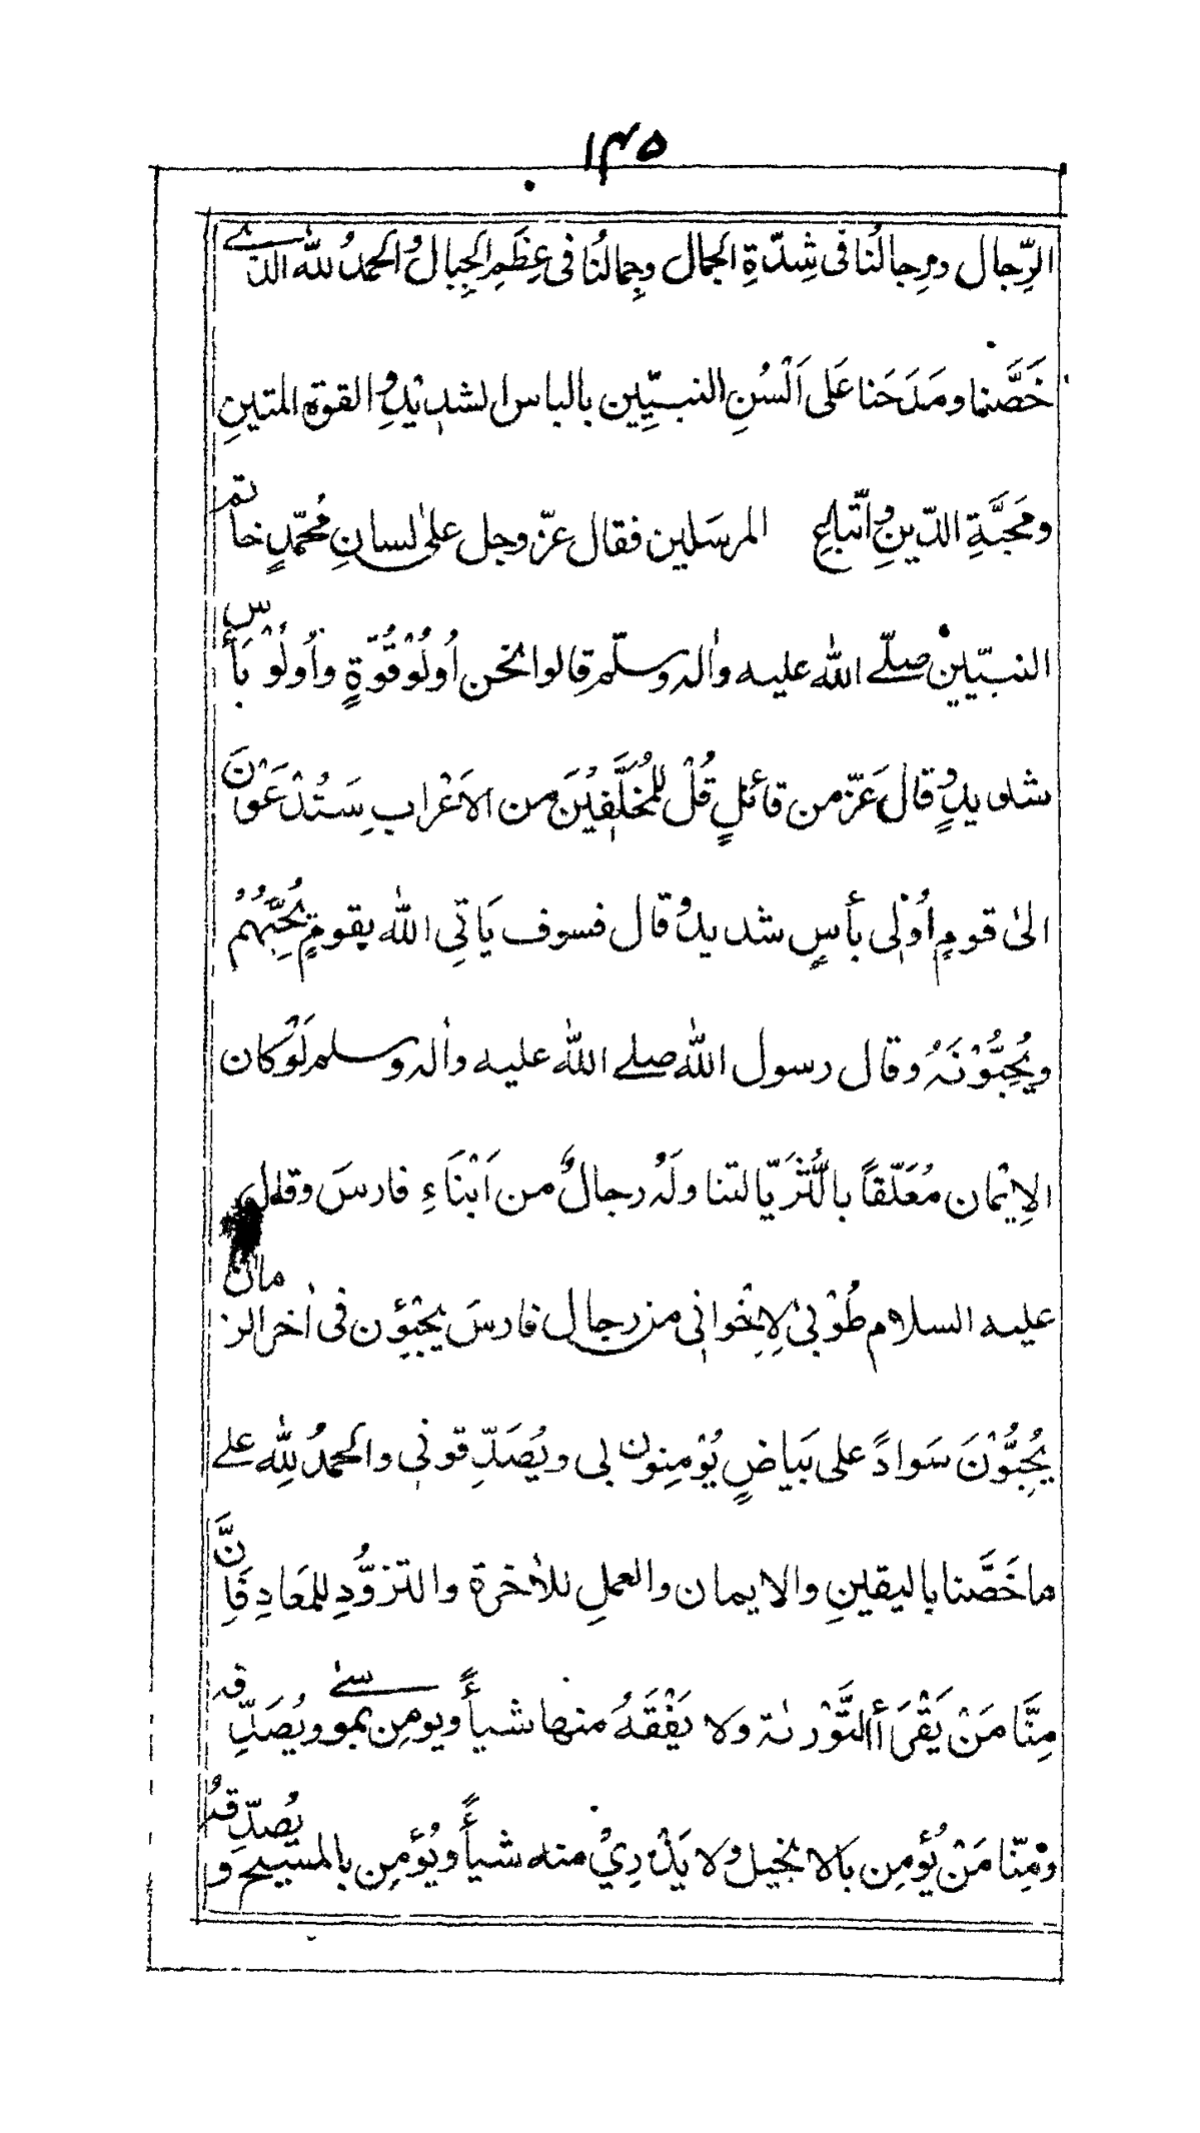 ١٣٥
الرِّجال ورِجالُنا فی شِدّةِ الجمال وجِمالُنا فی عِظَمِ الجِبال والحمدُ للّٰه الذی
خَصَّنا ومَدَحَنا عَلی اَلْسُنِ النبیِّین بالباس الشدِیْدِ والقوة المتینِ
ومَحَبَّةِ الدّینِ واتّباعِ المرسَلین فقال عزّ وجل علیٰ لسانِ مُحمّدٍ خاتم
النبیّین صلّے اللّٰه علیه واٰله وسلّم قالوا نحن اُولُوْ قُوّةٍ واُولُوْ بَأْسٍ
شدیدٍ وقال عَزّ من قائلٍ قُلْ لِلْمُخَلَّفِیْنَ من الاَعْرابِ سَتُدْعَوْنَ
الیٰ قومٍ اُوْلِی بأسٍ شدید وقال فسوف یَاتِی اللّٰه بقومٍ یُحِبُّهُمْ
ویُحِبُّوْنَهُ وقال رسول اللّٰه صلے اللّٰه علیه واٰله وسلم لَوْ کان
الاِیْمان مُعَلّقاً بالثُّرَیّا لتناولَهُ رجالٌ من اَبْنَاءِ فارسَ وقال
علیه السلام طُوْبیٰ لِاِخْوانِی من رجال فارسَ یجیْؤن فی اٰخر الزمان
یُحِبُّوْنَ سَواداً علی بَیاضٍ یُوْمِنون بی ویُصَدِّقونی والحمدُ لِلّٰه علے
ما خَصَّنا بالیقینِ والایمان والعملِ للاٰخرة والتزوُّدِ للمَعادِ فَاِنَّ
مِنَّا مَنْ یَقْرَأُ التَّوْرٰىة ولا یَفْقَهُ منها شیأً ویومِن بموسیٰ ویُصَدِّقه
ومِنّا مَنْ یُؤمِن بالانجیل ولا یَدْرِیْ منه شیأً ویُؤمِن بالمسیح ویُصدِّقُه